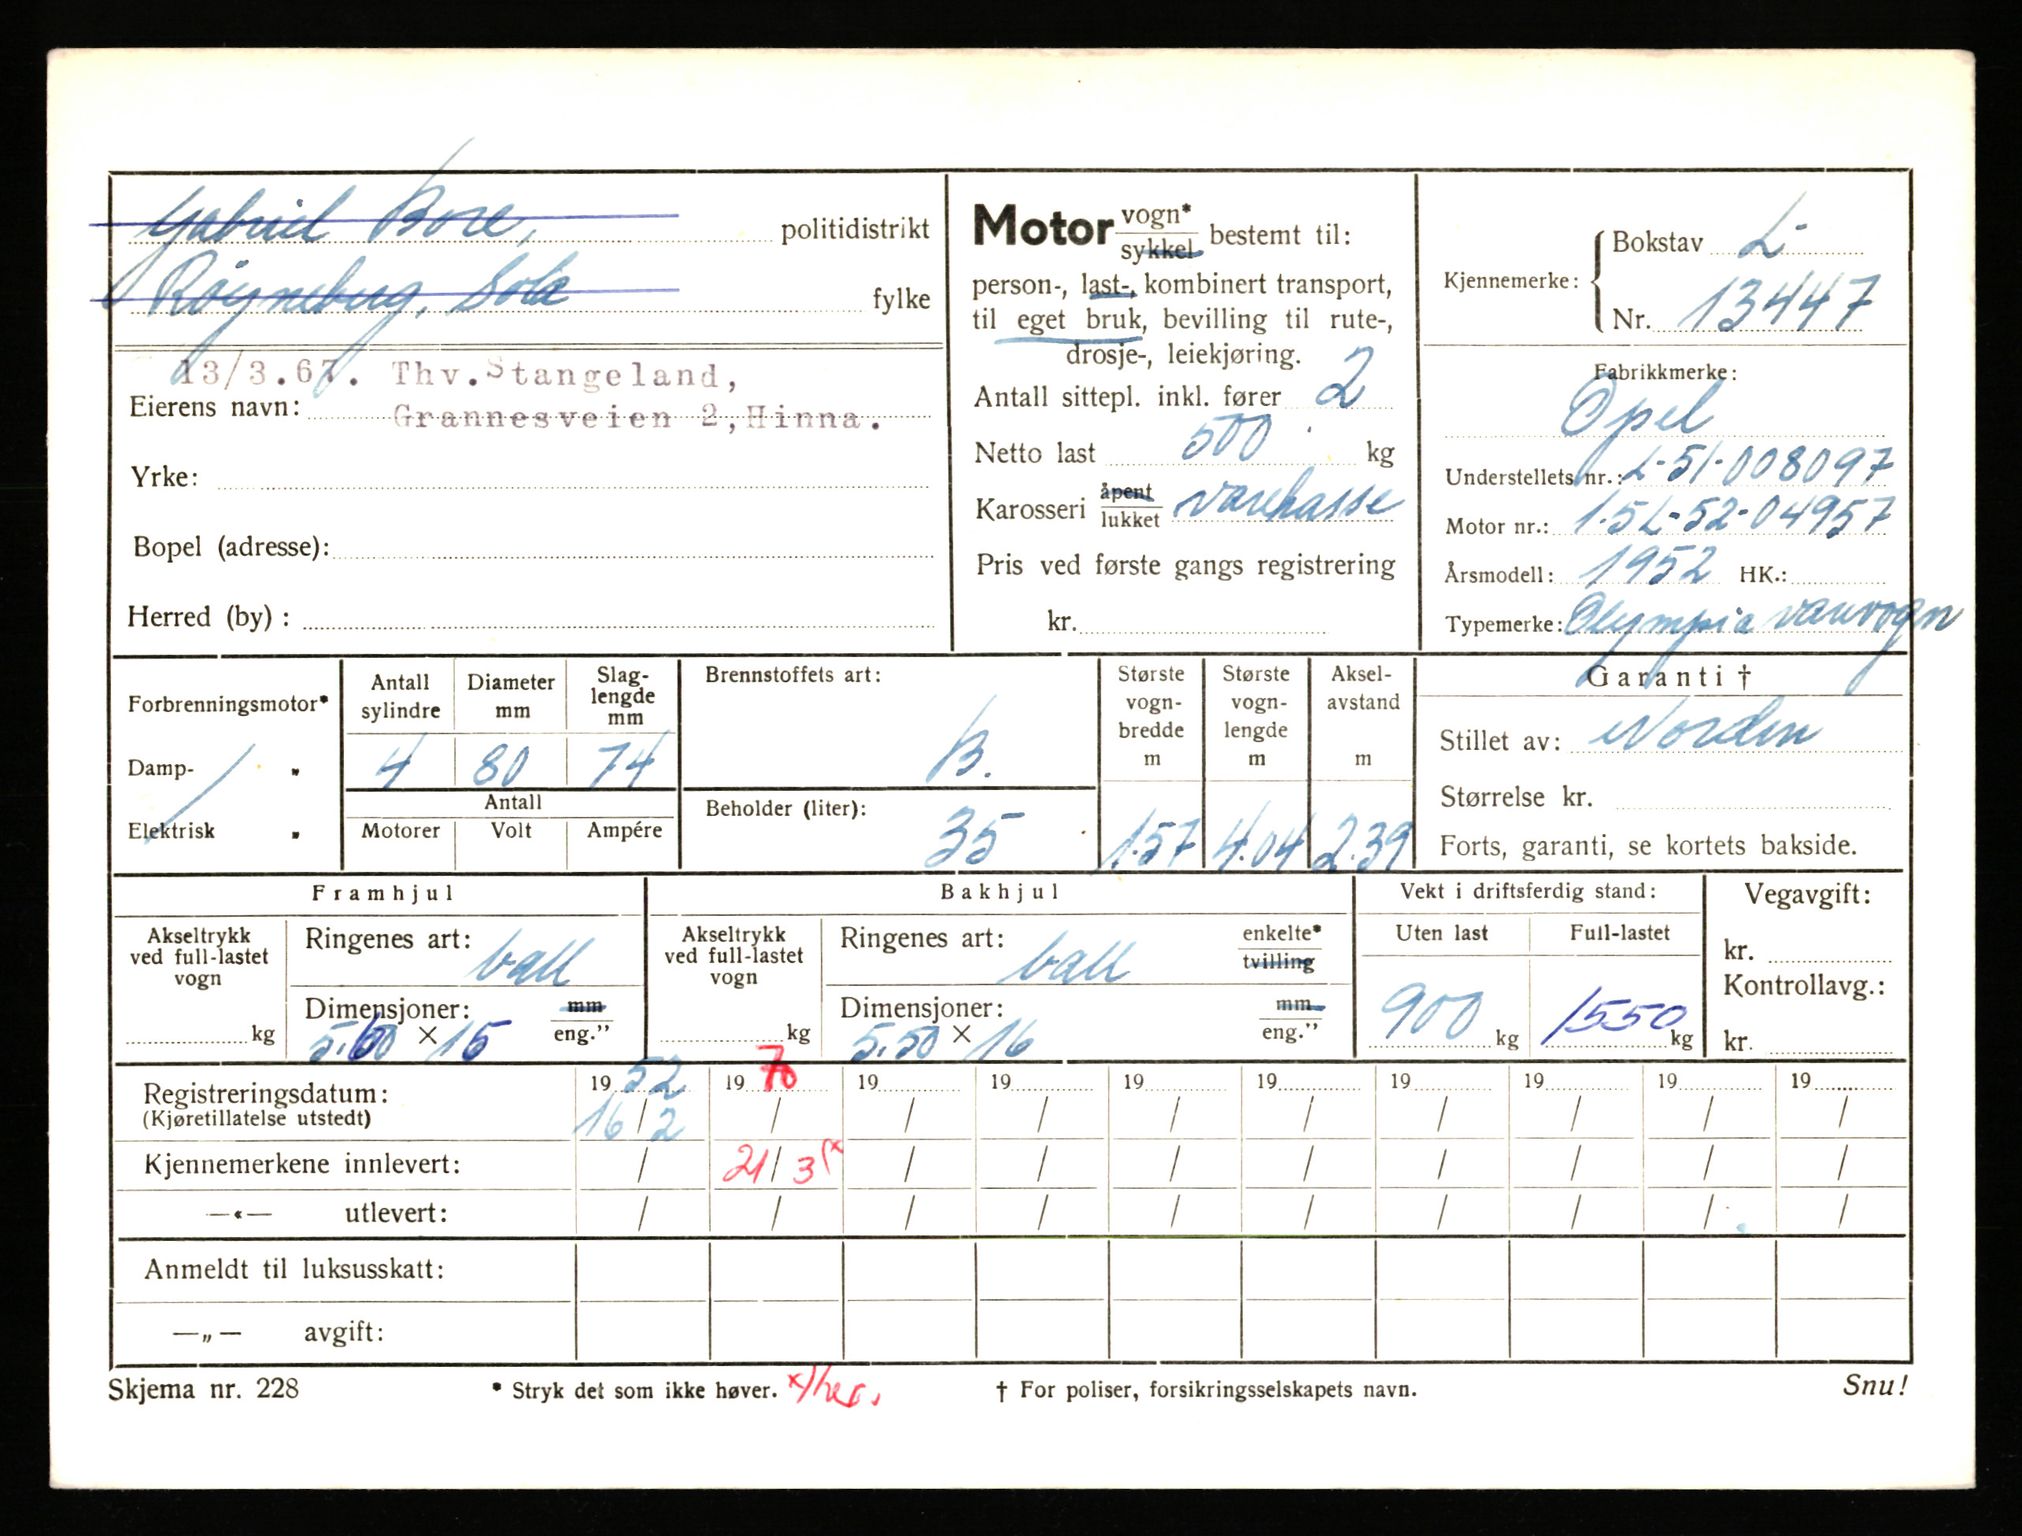 Gabriel Bore, politidistrikt
Røyneberg, Sola fylke
13/3.67. Thv. Stangeland,
Eierens navn: Grannesveien 2, Hinna.
Yrke:
Bopel (adresse):
Herred (by) :
Motor vogn* / sykkel bestemt til:
person-, last-, kombinert transport,
til eget bruk, bevilling til rute-,
drosje-, leiekjøring.
Antall sittepl. inkl. fører 2
Netto last 500 kg
Karosseri åpent / lukket varekasse
Pris ved første gangs registrering
kr.
Kjennemerke: Bokstav L-
Nr. 13447
Fabrikkmerke:
Opel
Understellets nr.: L-51-008097
Motor nr.: 1.5L-52-04957
Årsmodell: 1952 HK.:
Typemerke: Olympia varevogn
Forbrenningsmotor*
Damp- "
Elektrisk "
Antall sylindre Diameter mm Slaglengde mm
4 80 74
Antall
Motorer Volt Ampére
Brennstoffets art:
B.
Beholder (liter):
35
Største vogn-bredde m
1.57
Største vogn-lengde m
4.04
Aksel-avstand m
2.39
Garanti †
Stillet av: Norden
Størrelse kr.
Forts, garanti, se kortets bakside.
Framhjul
Akseltrykk ved full-lastet vogn
kg
Ringenes art: ball
Dimensjoner: mm / eng."
5.60 × 15
Bakhjul
Akseltrykk ved full-lastet vogn
kg
Ringenes art: ball enkelte* / tvilling
Dimensjoner: mm / eng."
5.50 × 16
Vekt i driftsferdig stand:
Uten last Full-lastet
900 kg 1550 kg
Vegavgift:
kr.
Kontrollavg.:
kr.
19 52 19 70 19 19 19 19 19 19 19 19
Registreringsdatum:
(Kjøretillatelse utstedt) 16/2 / / / / / / / / /
Kjennemerkene innlevert: / 21/3 x / / / / / / / /
—«— utlevert: / / / / / / / / / /
Anmeldt til luksusskatt:
—„— avgift:
Skjema nr. 228 * Stryk det som ikke høver. † For poliser, forsikringsselskapets navn. Snu!